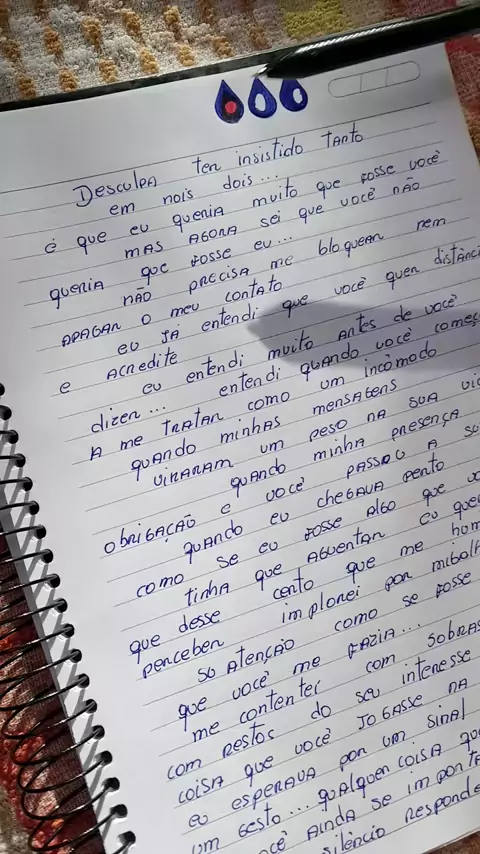 Desculpa ter insistido tanto
em nois dois...
é que eu queria muito que fosse você
mas agora sei que você não
queria que fosse eu...
não precisa me bloquear nem
apagar o meu contato
eu já entendi que você quer distânci
e acredite
eu entendi muito antes de você
dizer... entendi quando você começ
a me tratar como um incômodo
quando minhas mensagens
viraram um peso na sua vi
quando minha presença
obrigação e você passou a su
quando eu chegava perto
como se eu fosse algo que vo
tinha que aguentar eu que
que desse certo que me hum
perceber implorei por migalh
so atenção como se fosse
que você me fazia...
me contentei com sobras
com restos do seu interesse
coisa que você jogasse na
eu esperava por um sinal
um gesto... qualquer coisa que
cê ainda se import
silêncio responde